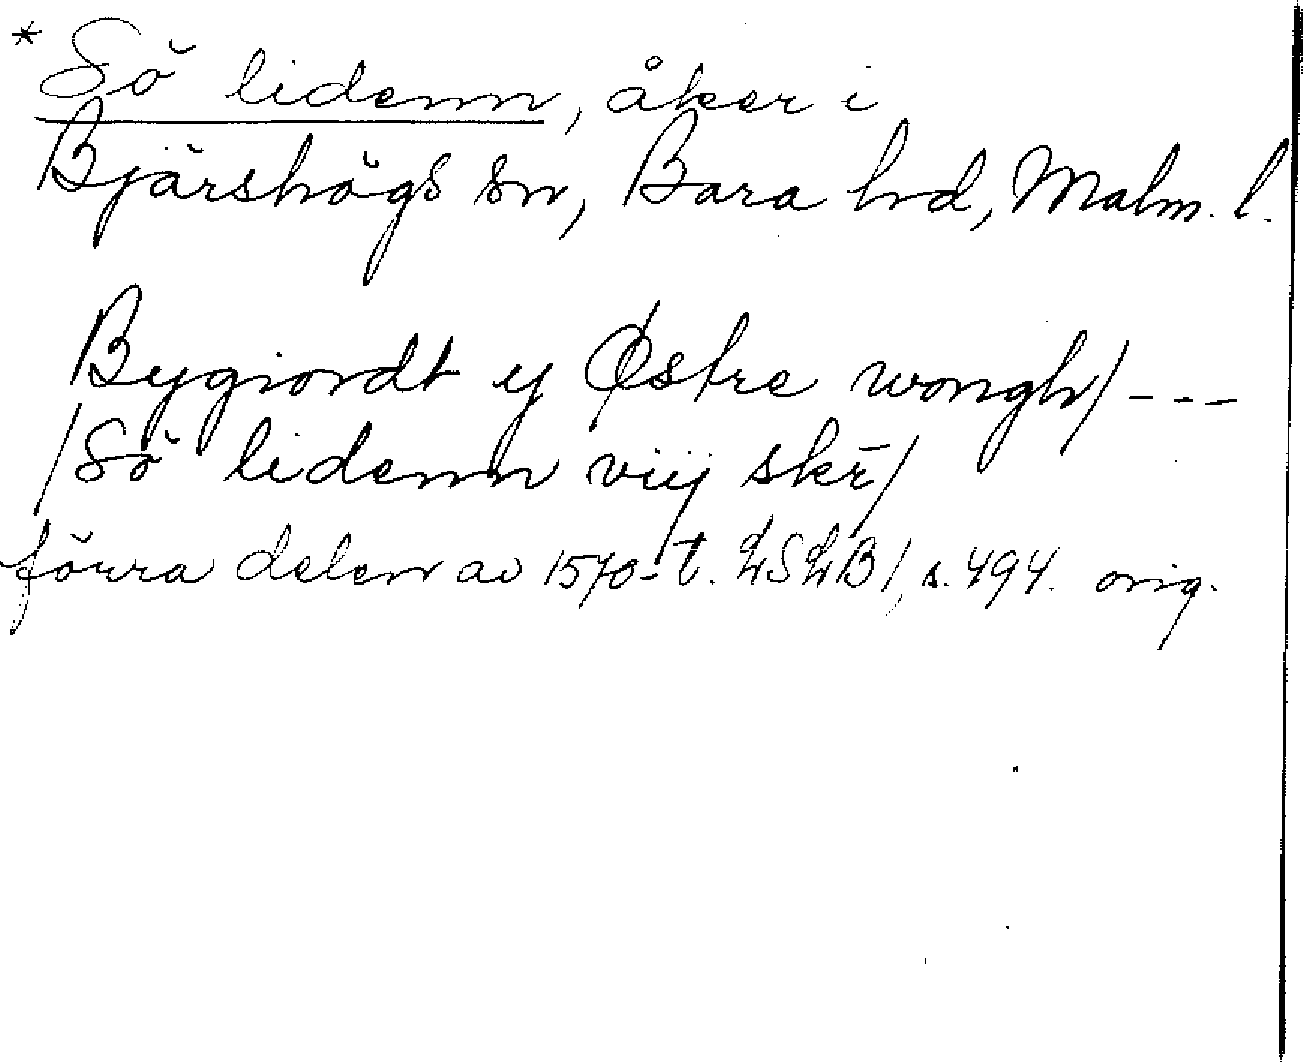 * Sö lidenn, åker i
Bjärshögs sn, Bara hd, Malm. l.
Bygiordt ij Østre wongh/ ---
/Sö lidenn viij skr̄/
förra delen av 1570-t. LSLB 1, s. 494. orig.